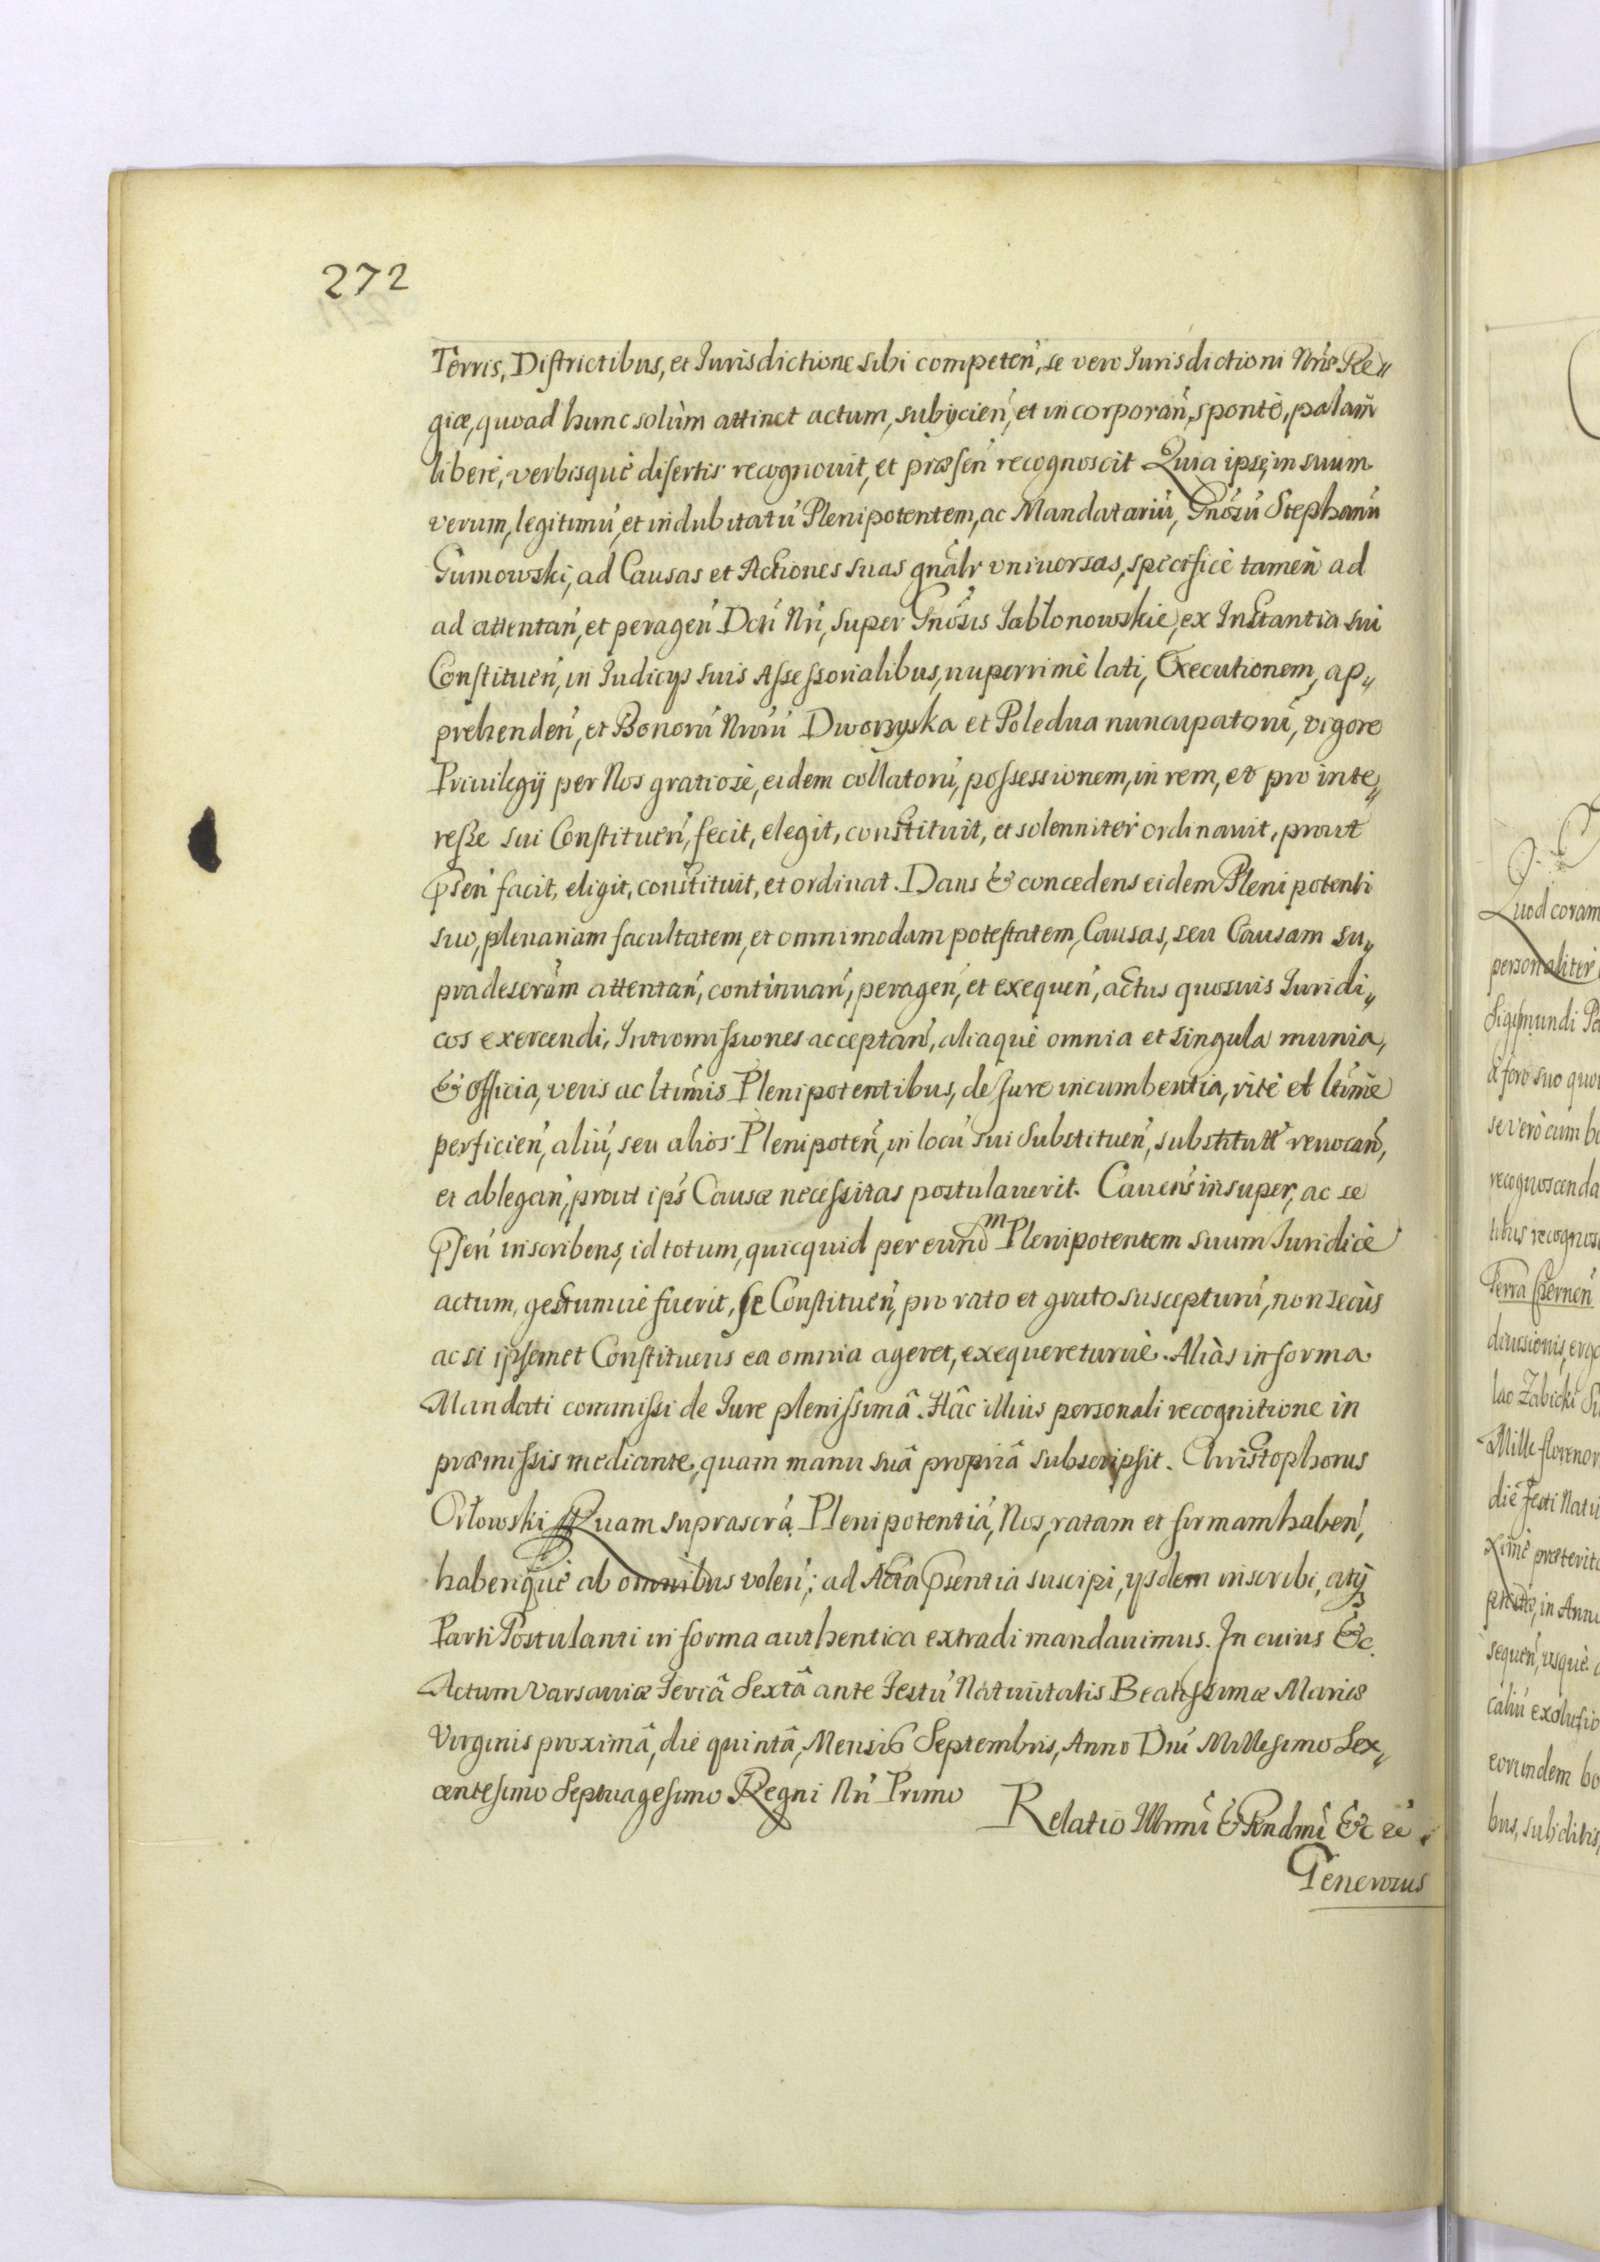 272
Terris, Districtibus, et Iurisdictione sibi competeń, se vero Iurisdictioni Nrae Re„
giæ, quoad hunc solùm attinet actum, subijcień, et incorporań, spontè, palam̃
liberè, verbisquè disertis recognouit, et præseń recognoscit Quia ipse, in suum
verum, legitimú, et indubitatú Plenipotentem, ac Mandatariú, Gnosú Stephanú
Gumowski, ad Causas et Actiones suas gnalr vniuersas, specificè tamen ad
ad attentań, et perageń Dcti Nri, super Gnosis Jabłonowskie, ex Instantia sui
Constitueń, in Iudicijs suis Assessorialibus, nuperrimè lati, Executionem, ap„
prehendeń, et Bonorú Nrorú Dworzyska et Poledua nuncupatorú, vigore
Priuilegij per Nos gratiosè, eidem collatorú, possessionem, in rem, et pro inte„
resse sui Constitueń, fecit, elegit, constituit, et solenniter ordinauit, prout
pseń facit, eligit, constituit, et ordinat. Dans & concedens eidem Plenipotenti
suo, plenariam facultatem, et omnimodam potestatem, Causas, seu Causam su„
pradescram attentań, continuań, perageń, et exequeń, actus quosuis Iuridi„
cos exercendi, Intromissiones acceptań, aliaquè omnia et singula munia,
& officia, veris ac ltimis Plenipotentibus, de Jure incumbentia, ritè et ltime
perficień, aliú, seu alios Plenipoteń, in locú sui Substitueń, substitutú reuocań,
et ablegań, prout ips Causæ necessitas postulauerit. Caueńs insuper, ac se
pseń inscribens, id totum, quicquid per eundm Plenipotentem suum Iuridicè
actum, gestumuè fuerit, se Constitueń, pro rato et grato suscepturú, non secùs
ac si ipsemet Constituens ea omnia ageret, exequereturuè. Aliàs in forma
Mandati commissi de Iure plenissimâ. Hâc illius personali recognitione in
præmissis mediante, quam manu suâ propriâ subscripsit. Christophorus
Orłowski Quam suprascrá Plenipotentiá, Nos, ratam et firmam habeń,
haberiquè ab omnibus voleń; ad Acta pseńtia suscipi, ijsdem inscribi, atq
Parti Postulanti in forma authentica extradi mandauimus. In cuius &c.
Actum Varsauiæ Feriâ Sextâ ante Festú Natiuitatis Beatissimæ Mariæ
Virginis proximâ, die quintâ, Mensis Septembris, Anno Dni Millesimo Sex„
centesimo Septuagesimo Regni Nri Primo
Relatio Illmi & Rndmi &c
Generosus
Quod coram
personaliter
Sigismundi
à foro suo
se verò cum
recognoscenda
Terra Czernen
diuisionis, erga
lao Zabicki
Mille florenor
die Festi
in Anno
sequeń, vsquè
eorundem
bus, subditis,